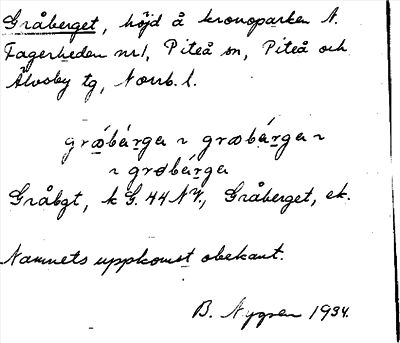 Gråberget, höjd å kronoparken N.
Fagerheden nr1, Piteå sn, Piteå och
Älvsby tg, Norrb. l.
grǻbárga ~ grábárga ~
~ grøbárga
Gråbgt, k G. 44 NV., Gråberget, ek.
Namnets uppkomst obekant.
B. Nygren 1934.